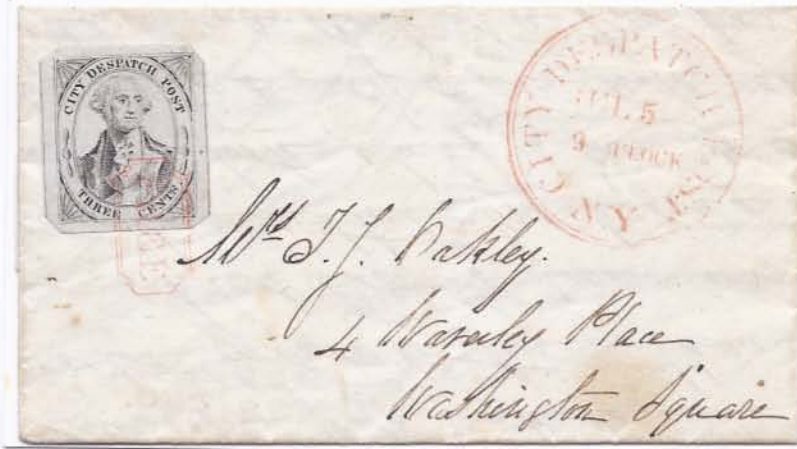 CITY DESPATCH POST
THREE CENTS.
FREE
N.Y. CITY DESPATCH POST
JUL. 5
9 O'CLOCK
Mrs T. J. Oakley.
4 Waverley Place
Washington Square